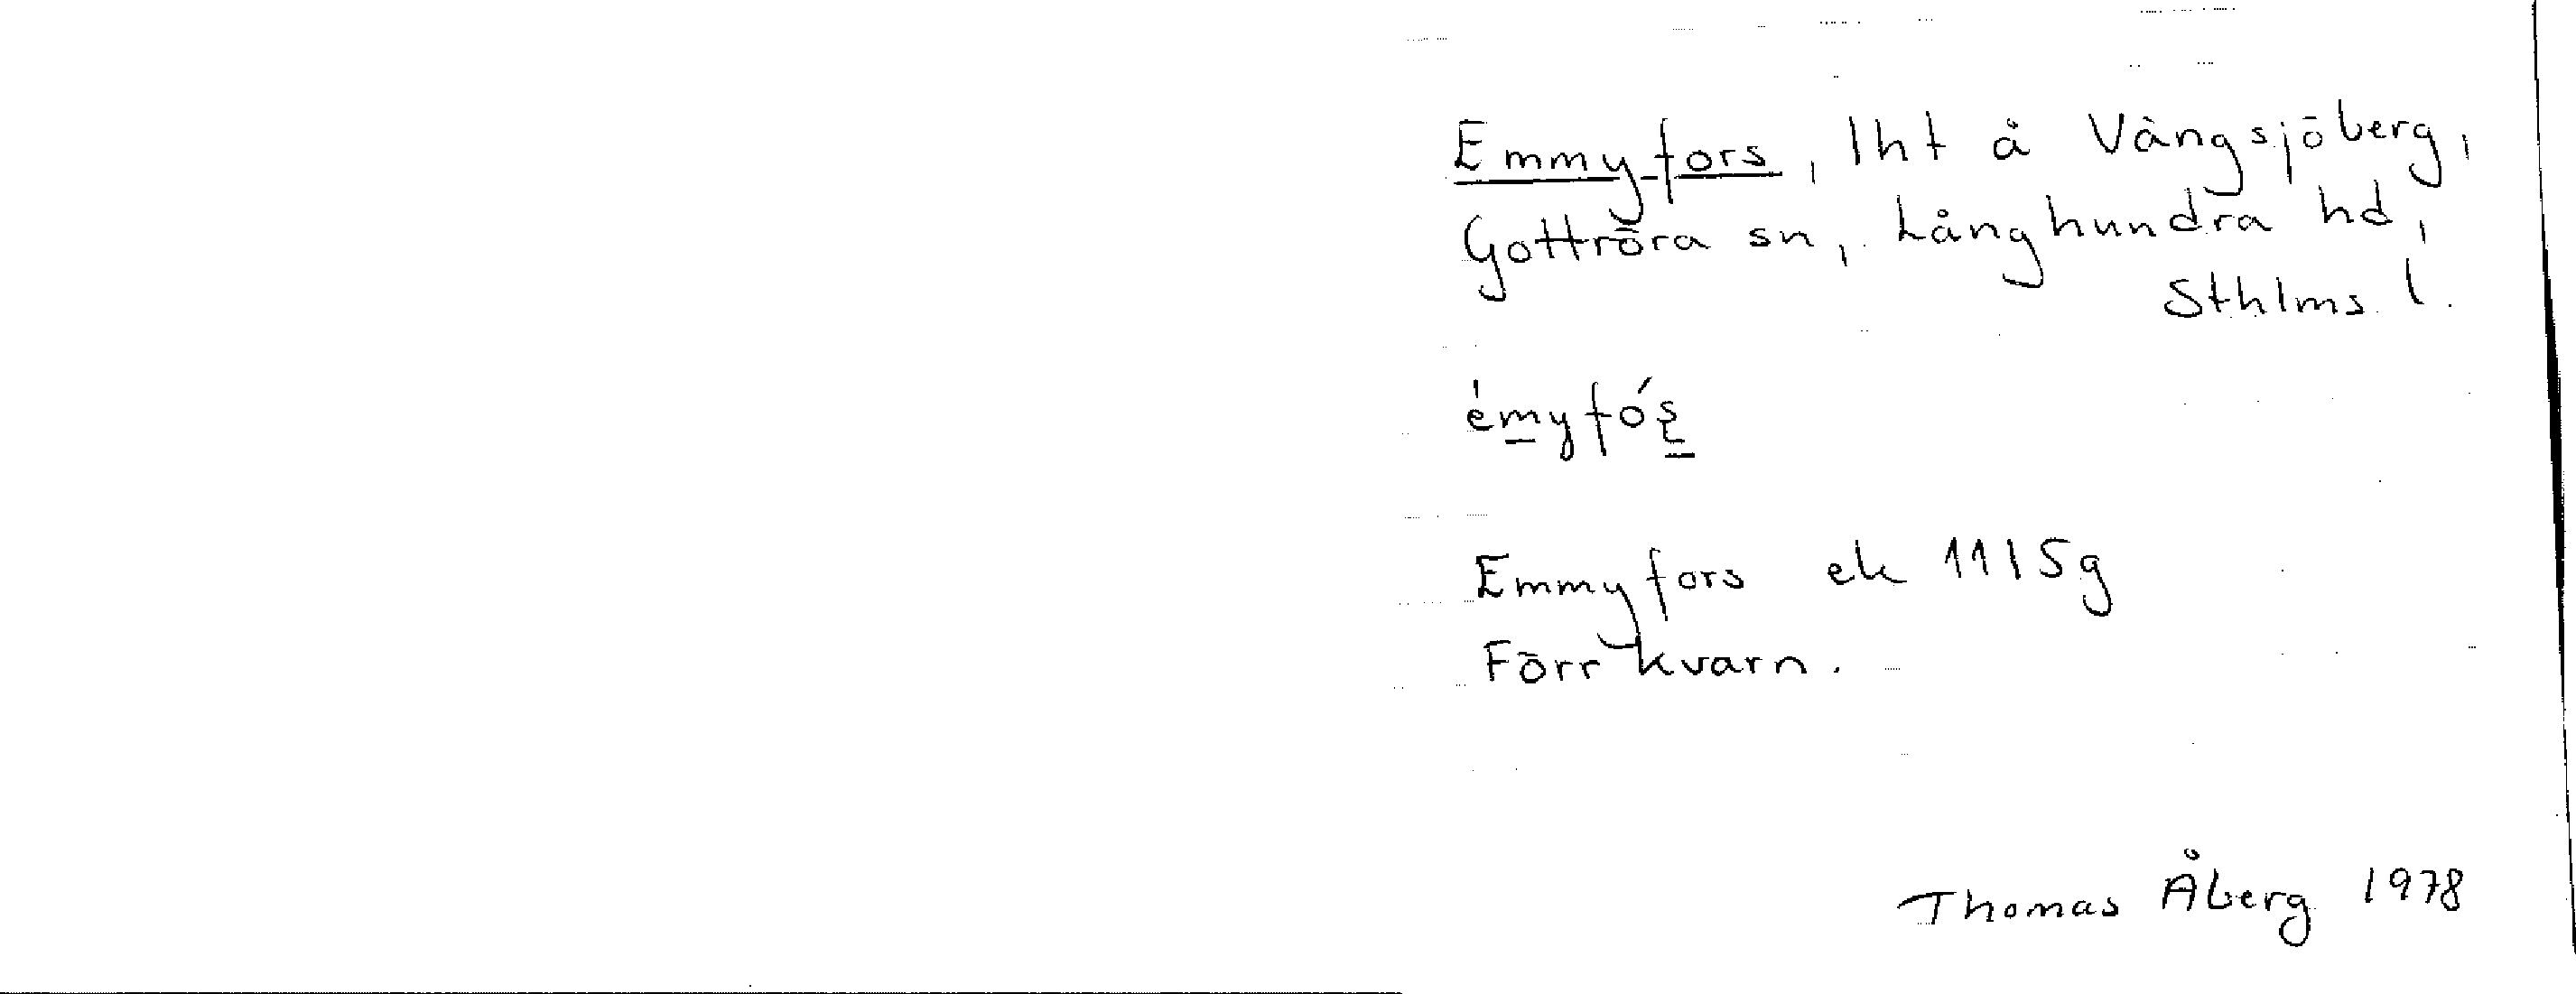 Emmyfors, lht å Vängsjöberg,
Gottröra sn, Långhundra hd,
Sthlms l.
émyfó́ʂ
Emmyfors ek 11I5g
Förr kvarn.
Thomas Åberg 1978